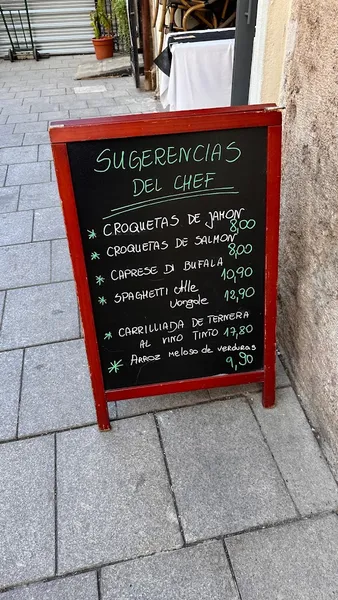 SUGERENCIAS
DEL CHEF
* CROQUETAS DE JAMON 8,00
* CROQUETAS DE SALMON 8,00
* CAPRESE DI BUFALA 10,90
* SPAGHETTI Alle
Vongole 12,90
* CARRILLIADA DE TERNERA
AL VINO TINTO 17,80
* ARROZ meloso de verduras
9,90